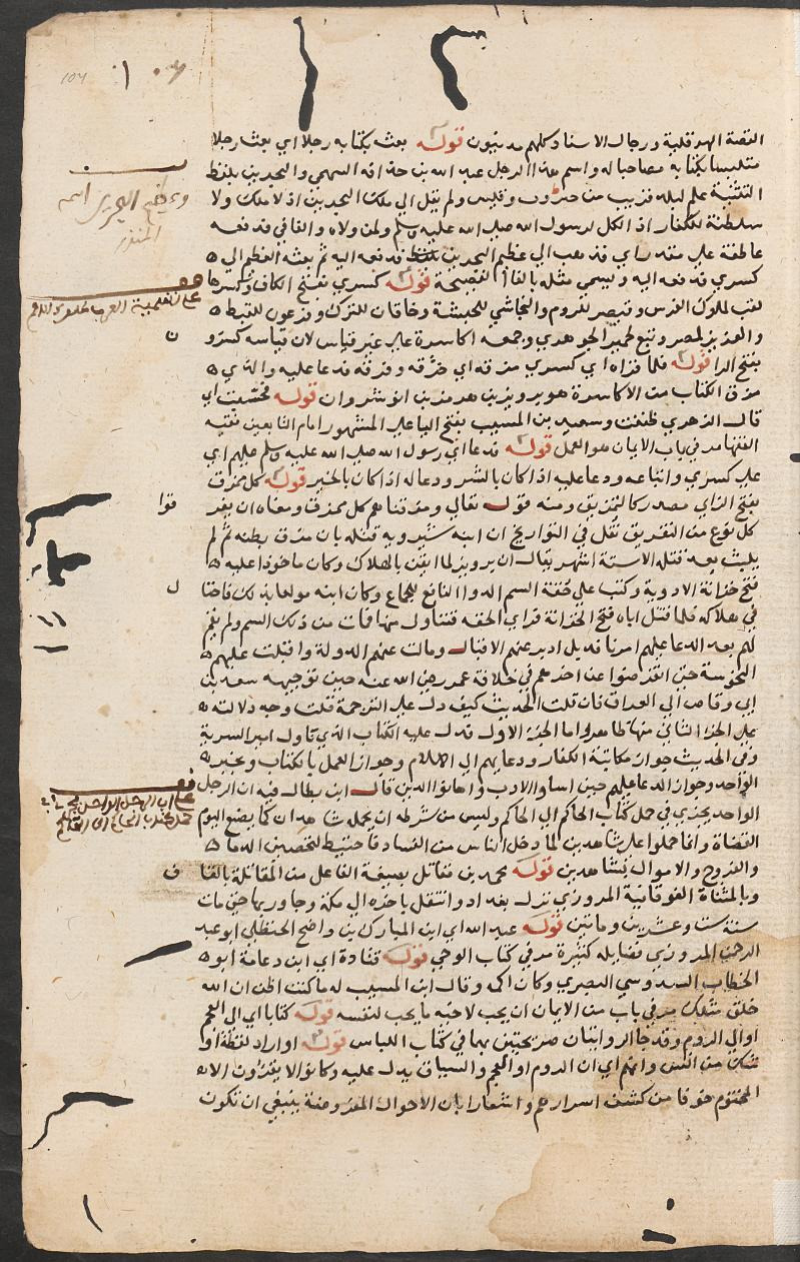 القصة الهرقلية ورجال الاسناد كلهم مدنيون قوله بعث بكتابه رجلا اي بعث رجلا
متلبسا بكتابه مصاحبا له واسم هذا الرجل عبد الله بن حذافة السهمي والبحرين بلفظ
التثنية علم لبلد قريب من ولم يقل الي ملك البحرين اذ لا ملك ولا
سلطنة للكفار اذ الكل لرسول الله صلي الله عليه وسلم ولمن ولاه والفا في فدفعه
عاطفة علي مقدر اي فذهب الي عظيم البحرين فدفعه اليه ثم بعثه العظيم الي
كسري فدفعه اليه ويسمي مثله بالفا الفصيحة قوله كسري بفتح الكاف وكسرها
لقب لملوك الفرس وقيصر للروم والنجاشي للحبشة وخاقان للترك وفرعون للقبط
والعزيز لمصر وتبع لحمير الجوهري وجمعه اكاسرة علي غير قياس لان قياسه كسرو
بفتح الرا قوله فلما قراه اي كسري مزقه اي خرقه وفرقه فدعا عليه والذي
مزق الكتاب من الاكاسرة هو برويز بن هرمز بن انوشروان قوله فحسبت اي
قال الزهري ظننت وسعيد بن المسيب بفتح اليا علي المشهور امام التابعين فقيه
الفقها مر في باب الايمان هو العمل قوله فدعا اي رسول الله صلي الله عليه وسلم عليهم اي
علي كسري واتباعه ودعا عليه اذا كان بالشر ودعا له اذا كان بالخير قوله كل ممزق
بفتح الزاي مصدر كالتمزيق ومنه قوله تعالي ومزقناهم كل ممزق ومعناه ان يفر
كل نوع من التفريق نقل في التواريخ ان ابنه شيرويه قتله بان مزق بطنه ثم لم
يلبث بعد قتله الا ستة اشهر يقال ان برويز لما ايقن بالهلاك وكان ماخوذا عليه
فتح خزانة الادوية وكتب علي حقة السم الدوا النافع للجماع وكان ابنه مولعا بذلك فاحتا
في هلاكه فلما قتل اباه فتح الخزانة فراي الحقة فتناول منها فمات من ذلك السم ولم يقم
لهم بعد الدعا عليهم امر نافذ بل ادبر عنهم الاقبال ومالت عنهم الدولة واقبلت عليهم
النحوسة حتي انقرضوا عن اخرهم في خلافة عمر رضي الله عنه حين توجيهه سعد بن
ابي وقاص الي العراق فان قلت الحديث كيف دل علي الترجمة قلت وجه دلالته
علي الجزا الثاني منها ظاهر واما الجزء الاول فدل عليه الكتاب الذي ناوله امير السرية
وفي الحديث جواز مكاتبة الكفار ودعايهم الي الاسلام وجواز العمل بالكتاب وبخبر
الواحد وجواز الدعا عليهم حين اساوا الادب واهانوا الدين قال ابن بطال فيه ان الرجل
الواحد يجزي في حمل كتاب الحاكم الي الحاكم وليس من شرطه ان يحمله شاهدان كما يصنع اليوم
القضاة وانما حملوا علي شاهدين لما دخل الناس من الفساد فاحتيط لتحصين الدما
والفروج والاموال بشاهدين قوله محمد بن مقاتل بصيغة الفاعل من المقاتلة بالقا
وبالمثناة الفوقانية المروزي نزل بغداد وانتقل باخره الي مكة وجاور بها حتي مات
سنة ست وعشرين وماتين قوله عبد الله اي ابن المبارك بن واضح الحنظلي ابو عبد
الرحمن المروزي فضايله كثيرة مر في كتاب الوحي قوله قتادة اي ابن دعامة ابو
الخطاب السدوسي البصري وكان اكمه وقال ابن المسيب له ما كنت اظن ان الله
خلق مثلك مر في باب من الايمان ان يحب لاخيه ما يحب لنفسه قوله كتابا اي الي العجم
او الي الروم وقد جا الروايتان صريحتين بهما في كتاب اللباس قوله او اراد لفظة او
شك من انس وانهم اي ان الروم او العجم والسياق يدل عليه وكانوا لا يقرون الا
المختوم خوفا من كشف اسرارهم واشعارا بان الاحوال المعروضة ينبغي ان تكون
وعظيم البحرين اسمه
المنذر